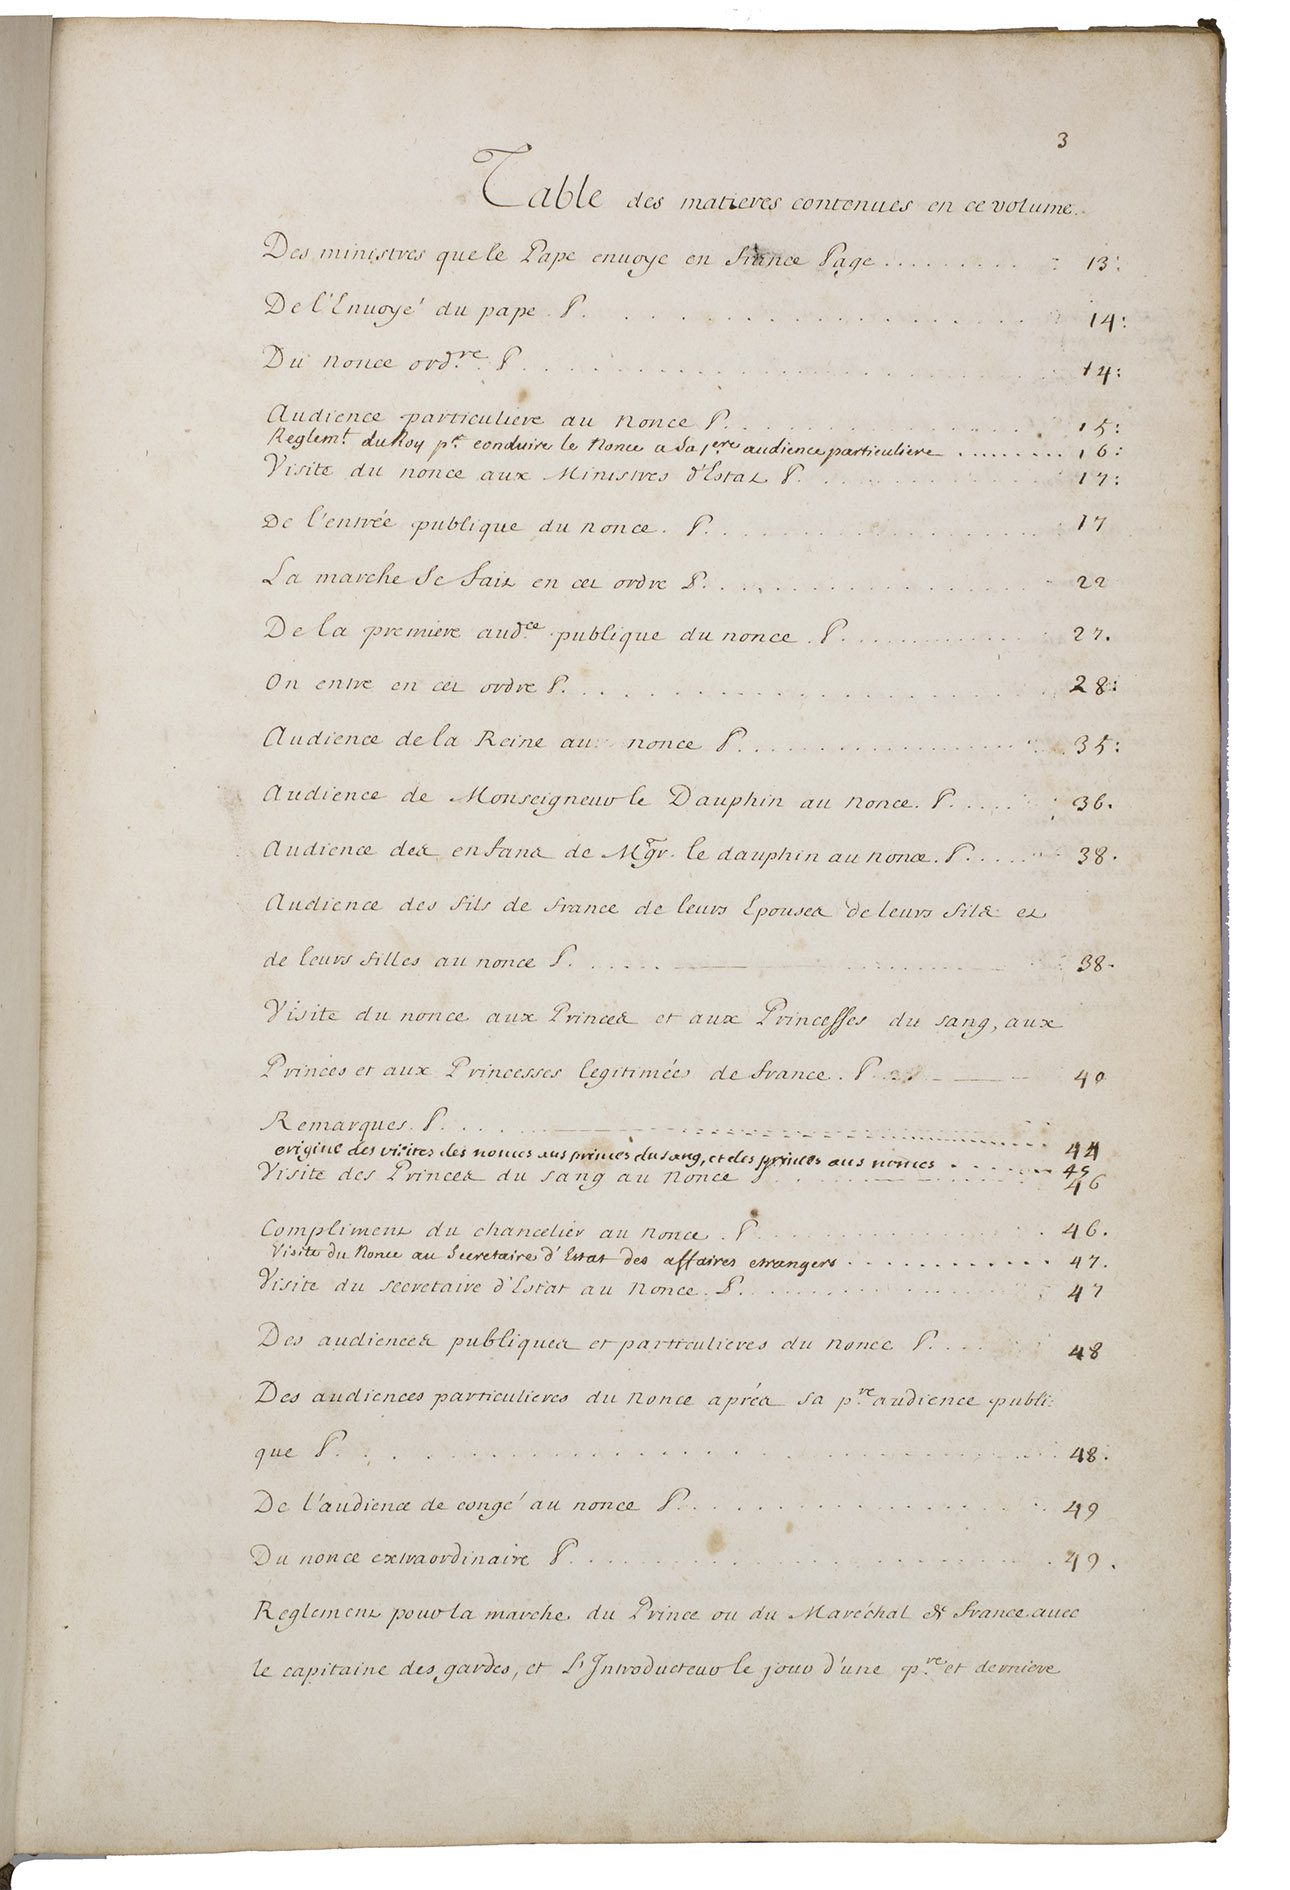 3
Table des matieres contenues en ce volume.
Des ministres que le Pape enuoye en france Page . . . . . . . . . 13:
De l'Enuoyé du pape. P. . . . . . . . . . 14:
Du nonce ord.re P. . . . . . . . . . 14:
Audience particuliere au nonce P. . . . . . . . . . 15:
Reglemt. du Roy pr. conduire le Nonce a Sa 1ere audience particuliere . . . . . . . . . 16:
Visite du nonce aux Ministres d'Estat P. . . . . . . . . . 17:
De l'entrée publique du nonce. P. . . . . . . . . . 17
La marche se fait en cet ordre P. . . . . . . . . . 22
De la premiere aud.ce publique du nonce. P. . . . . . . . . . 27.
On entre en cet ordre P. . . . . . . . . . 28:
Audience de la Reine au nonce P. . . . . . . . . . 35:
Audience de Monseigneur le Dauphin au nonce. P. . . . . 36.
Audience des enfans de Mgr. le dauphin au nonce. P. . . . . 38.
Audience des fils de france de leurs Epouses de leurs fils et
de leurs filles au nonce P. . . . . . . . . . 38.
Visite du nonce aux Princes et aux Princesses du sang, aux
Princes et aux Princesses legitimées de france. P. . . . 40
Remarques. P. . . . . . . . . . 44
origine des visites des nonces aus princes du sang, et des princes aus nonces . . . . . . 45
Visite des Princes du sang au nonce P. . . . . . . . . . 46
Compliment du chancelier au nonce. P. . . . . . . . . . 46.
Visite du Nonce au Secretaire d'Estat des affaires etrangers . . . . . . . . . . . . 47.
Visite du secretaire d'Estat au nonce. P. . . . . . . . . . 47
Des audiences publiques et particulieres du nonce P. . . . 48
Des audiences particulieres du nonce aprés sa p.re audience publi:
que P. . . . . . . . . . 48.
De l'audience de congé au nonce P. . . . . . . . . . 49
Du nonce extraordinaire P. . . . . . . . . . 49.
Reglement pour la marche du Prince ou du Maréchal de france auec
le capitaine des gardes, et L'Introducteur le jour d'une p.re et derniere